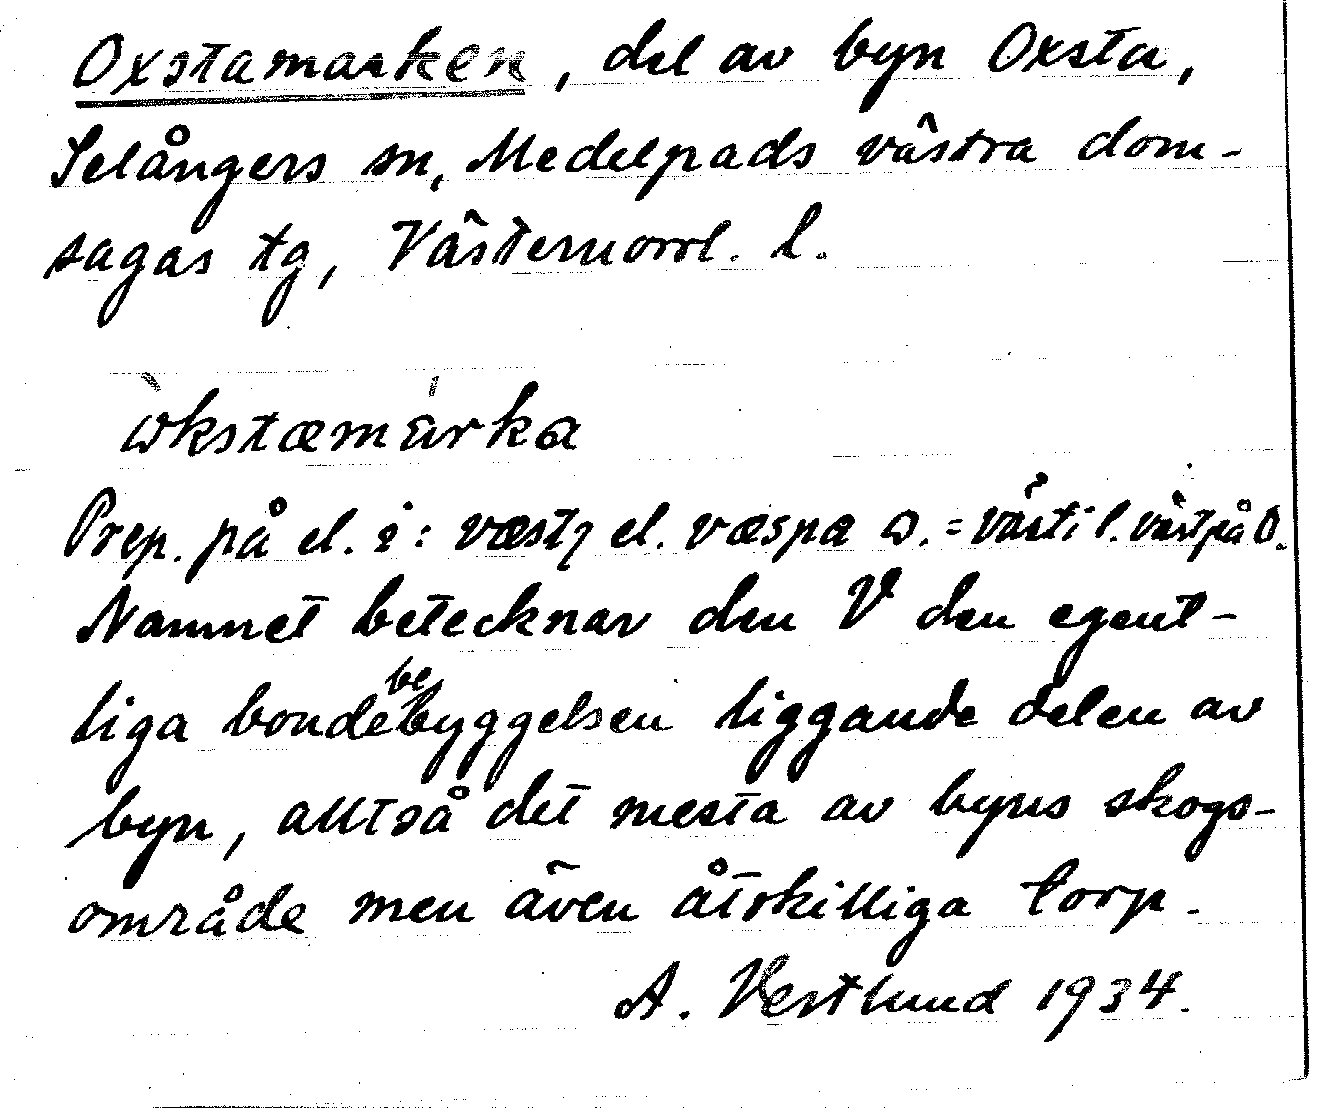 Oxstamarken, del av byn Oxsta,
Selångers sn, Medelpads västra dom-
sagas tg, Västernorrl. l.
ὼkstæmárka
Prep. på el. i: væstɩ el. væspa ω. = västi l. västpå O.
Namnet betecknar den V den egent-
liga bondebebyggelsen liggande delen av
byn, alltså det mesta av byns skogs-
område men även åtskilliga torp.
A. Vestlund 1934.